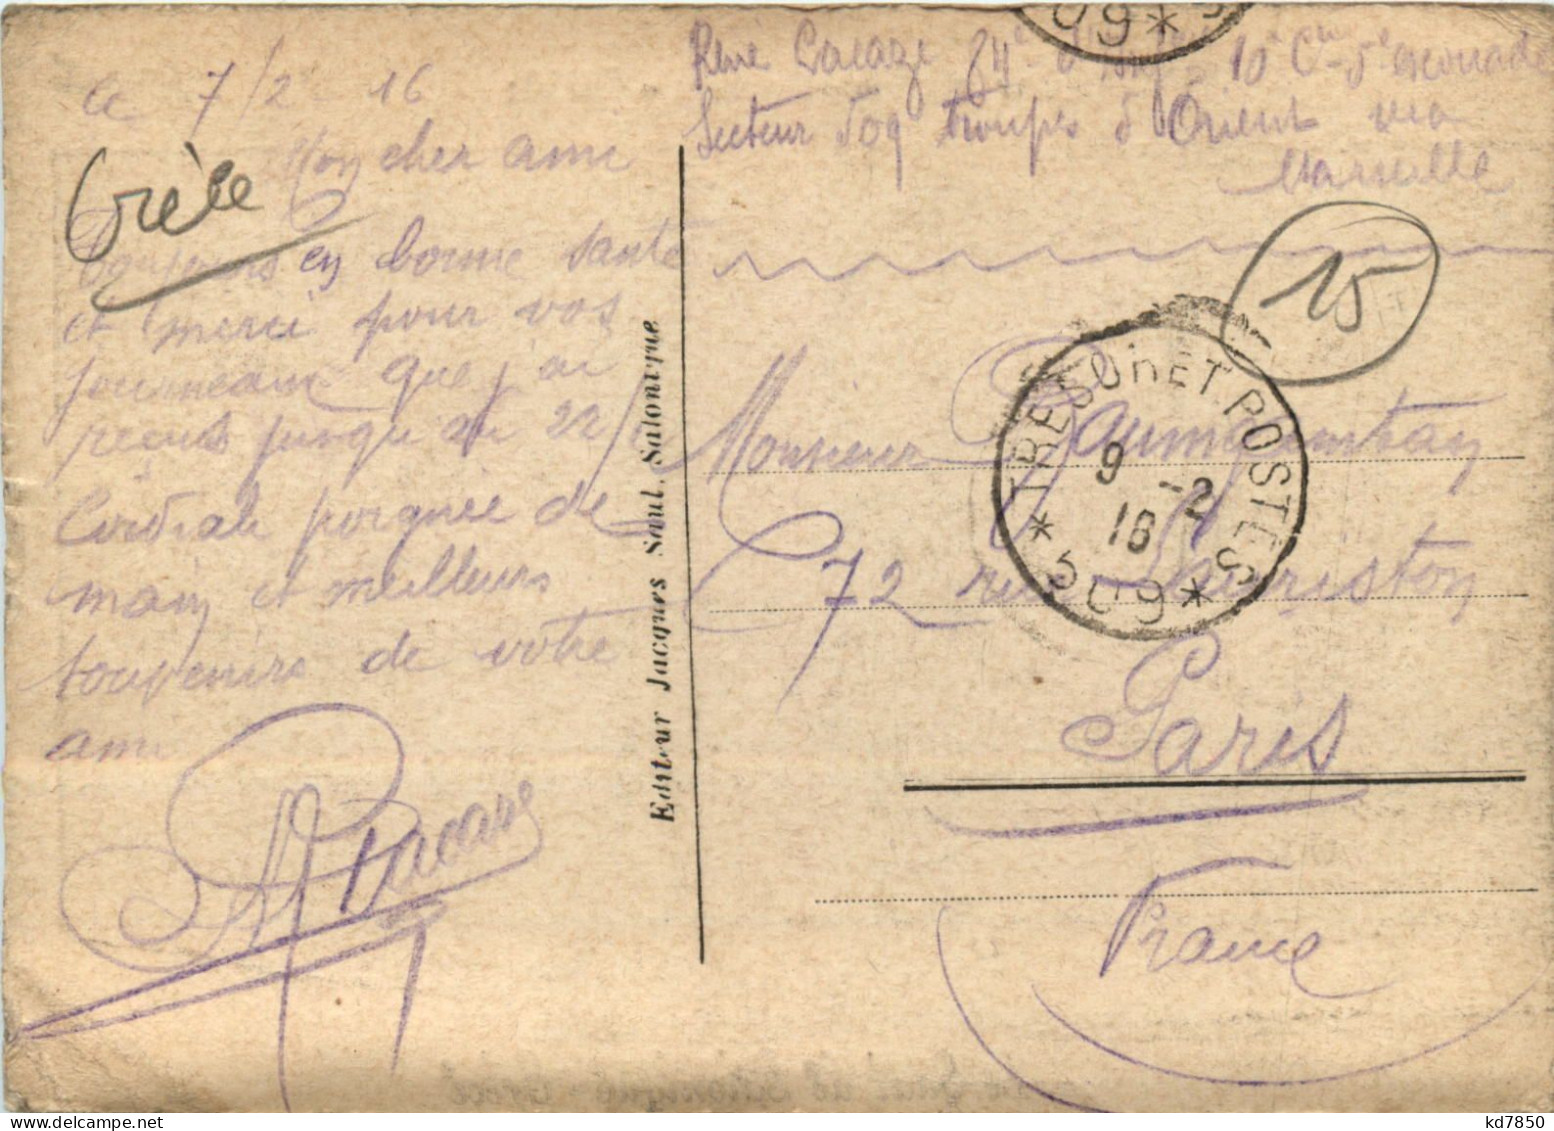 Ce 7/2 - 16
Mon cher ami
Toujours en bonne santé
et merci pour vos
journeaux que j'ai
reçus jusqu'au 22/1
Cordiale poignée de
main et meilleurs
souvenirs de votre
ami
Grèce
René 84e 10e Cie 5e escouade
Secteur 509 troupes d'Orient via
Marseille
15
Editeur Jacques Saul, Salonique
TRESOR ET POSTES
9 -2
16
* 509 *
09 *
Monsieur
72 rue Lauriston
Paris
France
kd7850